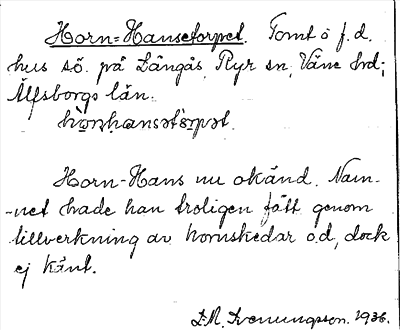 Horn=Hansetorpet. Tomt å f.d.
hus sö. på Långås, Ryr sn, Väne hd;
Älfsborgs län.
hòṇhansətòrpət.
Horn-Hans nu okänd. Nam-
-net hade han troligen fått genom
tillverkning av hornskedar o.d, dock
ej känt.
Svenungsson. 1936.